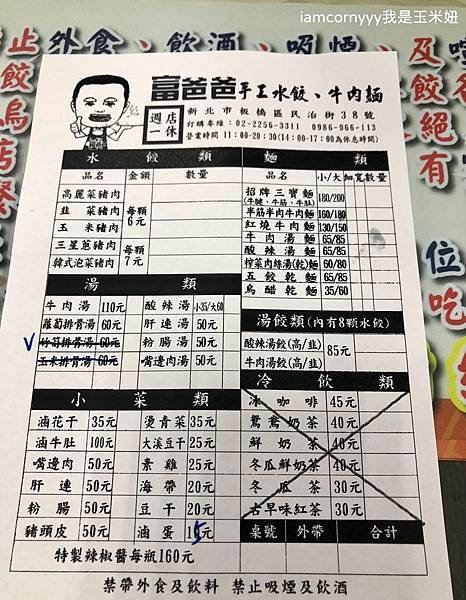 iamcornyyy我是玉米妞
止外食、飲酒、吸煙、及
富爸爸手工水餃、牛肉麵
週一 店休
新北市板橋區民治街38號
訂購專線：02-2256-3311 0986-966-113
營業時間 11:00-20:30(14:00-17:00為休息時間)
水餃類
品名 金額 數量
高麗菜豬肉
韭菜豬肉
玉米豬肉
每顆6元
三星蔥豬肉
韓式泡菜豬肉
每顆7元
麵類
品名 小/大 細 寬 數量
招牌三寶麵 180/200
(牛腱、牛筋、牛肚)
半筋半肉牛肉麵 160/180
紅燒牛肉麵 130/150
牛肉湯麵 65/85
酸辣湯麵 65/85
榨菜肉絲湯(乾)麵 60/80
五餃乾麵 60/80
烏醋乾麵 35/60
湯類
牛肉湯 110元 酸辣湯 小35/大60
蘿蔔排骨湯 60元 肝連湯 50元
V 竹筍排骨湯 60元 粉腸湯 50元
玉米排骨湯 60元 嘴邊肉湯 50元
湯餃類(內有8顆水餃)
酸辣湯餃(高/韭)
牛肉湯餃(高/韭)
85元
小菜類
滷花干 35元 燙青菜 35元
滷牛肚 100元 大溪豆干 25元
嘴邊肉 50元 素雞 25元
肝連 50元 海帶 20元
粉腸 50元 豆干 20元
豬頭皮 50元 滷蛋 15元
特製辣椒醬每瓶160元
冷飲類
冰咖啡 45元
鴛鴦奶茶 40元
鮮奶茶 40元
冬瓜鮮奶茶 40元
冬瓜茶 30元
古早味紅茶 30元
桌號 外帶 合計
禁帶外食及飲料 禁止吸煙及飲酒